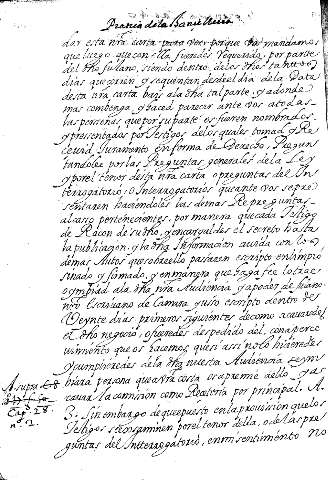 Practica de la
dar esta nra carta para ver porque os mandamos
que luego que con ella fueredes requerido por parte
del dho fulano, siendo dentro de tantos
dias que corren, y se quentan desde el dia de la Data
desta nra carta vais a la tal parte, y adonde
mas combenga, y haced parecer ante vos a todas
las personas que por su parte os fueren nombrados
y presentados por testigos de los quales tomad, y Re
cevid Juramento en forma de Derecho, Pregun
tandoles por las Preguntas generales de la Ley
y por el tenor desta nra carta o preguntas del In
terrogatorio, o Interrogatorios que ante vos se pre
sentaren haciendoles las demas Repreguntas
al caso pertenecientes, por manera que cada Testigo
de Raçon de su dho, y encargueldes el secreto hasta
la publicacion, y la dha Informacion con los
demas Autos que sobre ello pasaren escripto en limpio
sinado, y firmado, y en manera que haga fee lo traed
o ymbiad a la dha nra Audiencia, y a poder de
nro Escrivano de Camara y uso escripto dentro de
Veynte dias primeros siguientes de como acavardes
el dho negocio,
vimiento que os hacemos, que si assi no lo hicieredes
y cumplieredes de la dha nuestra Audiencia se ym
biara persona que a vra costa os apremie a ello, y
la comision como Receptoria por principal. A.
3. Sin embargo de que puesto en la provision que los
Testigos se examinen por el tenor della, o de las pre
guntas del Interrogatorio, en mi sentimiento no
A. supra
Cap. 28.
n. 12.